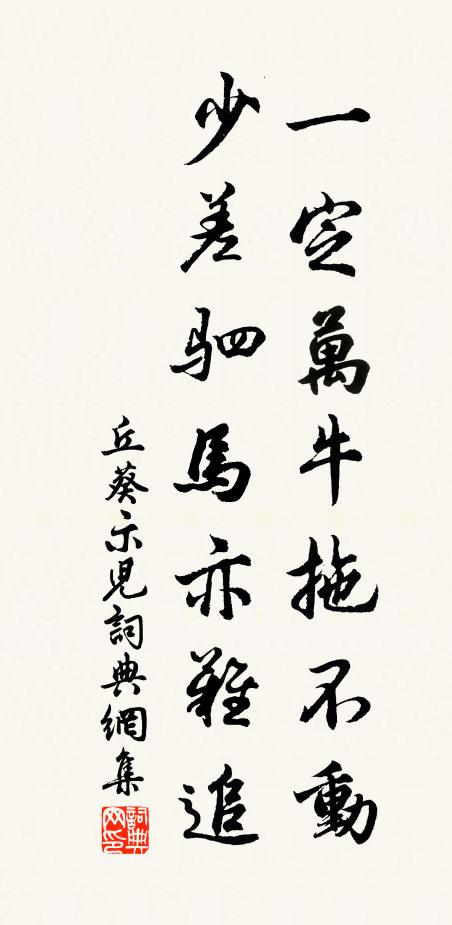 一定萬牛拖不動
少差駟馬亦難追
丘葵示児詞典網集
詞典
网印